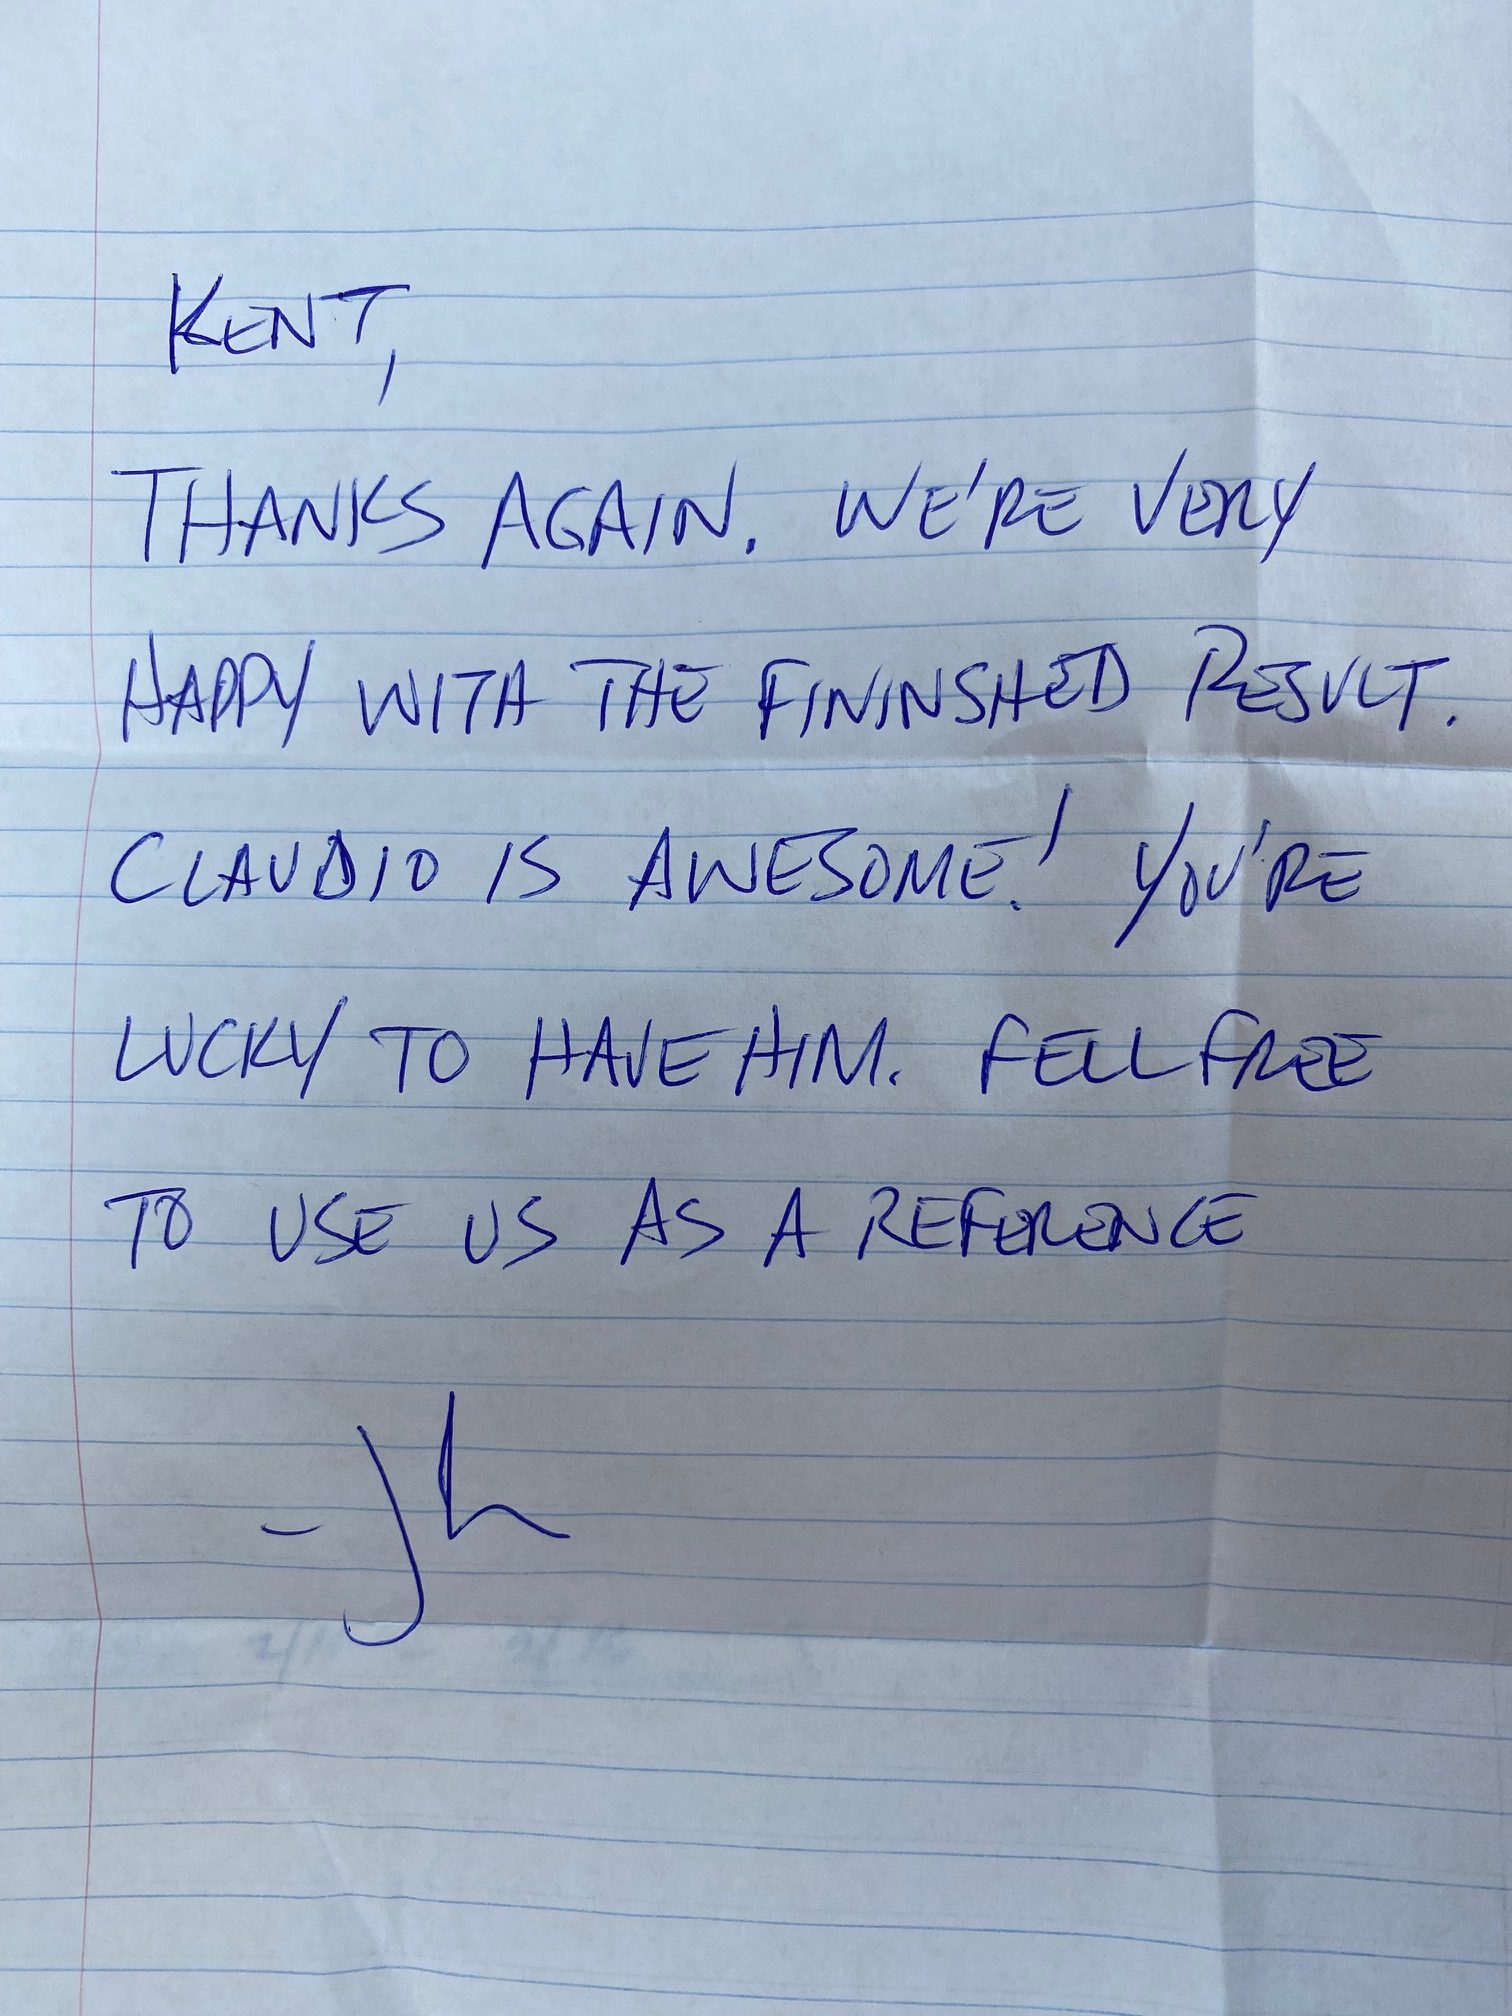 KENT,
THANKS AGAIN. WE'RE VERY
HAPPY WITH THE FININSHED RESULT.
CLAUDIO IS AWESOME! YOU'RE
LUCKY TO HAVE HIM. FELL FREE
TO USE US AS A REFERENCE